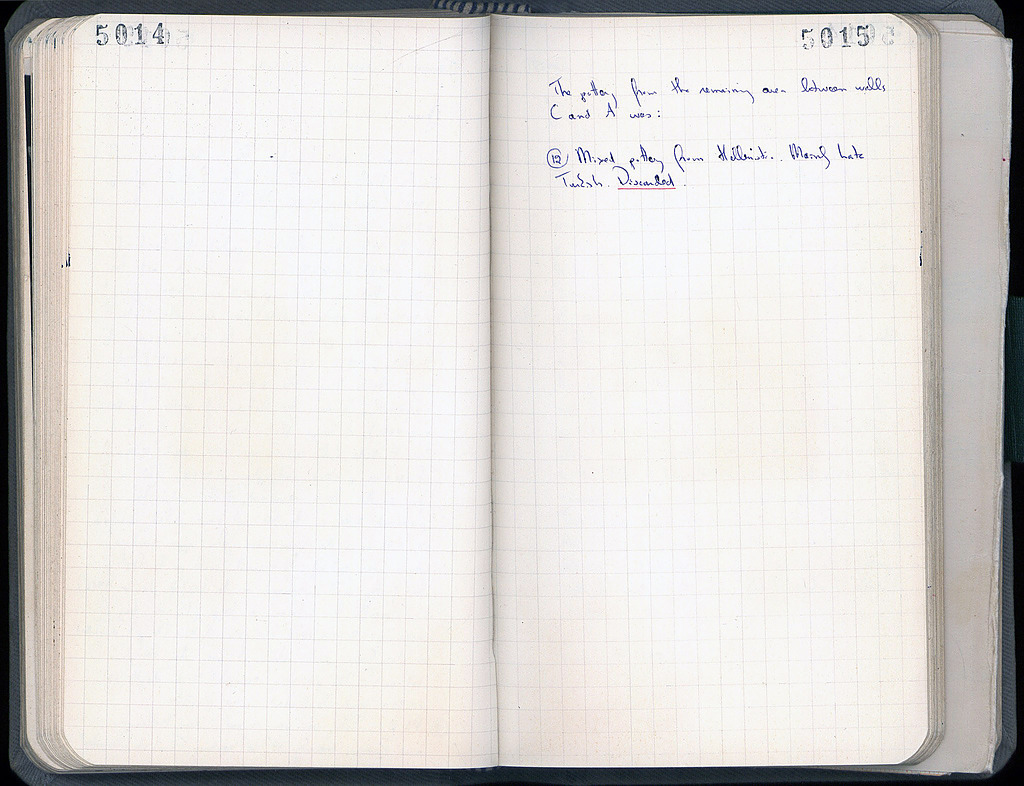 5014
5015
The pottery from the remaining area between walls
C and A was:
12 Mixed pottery from Hellenistic. Mainly Late
Turkish. Discarded.